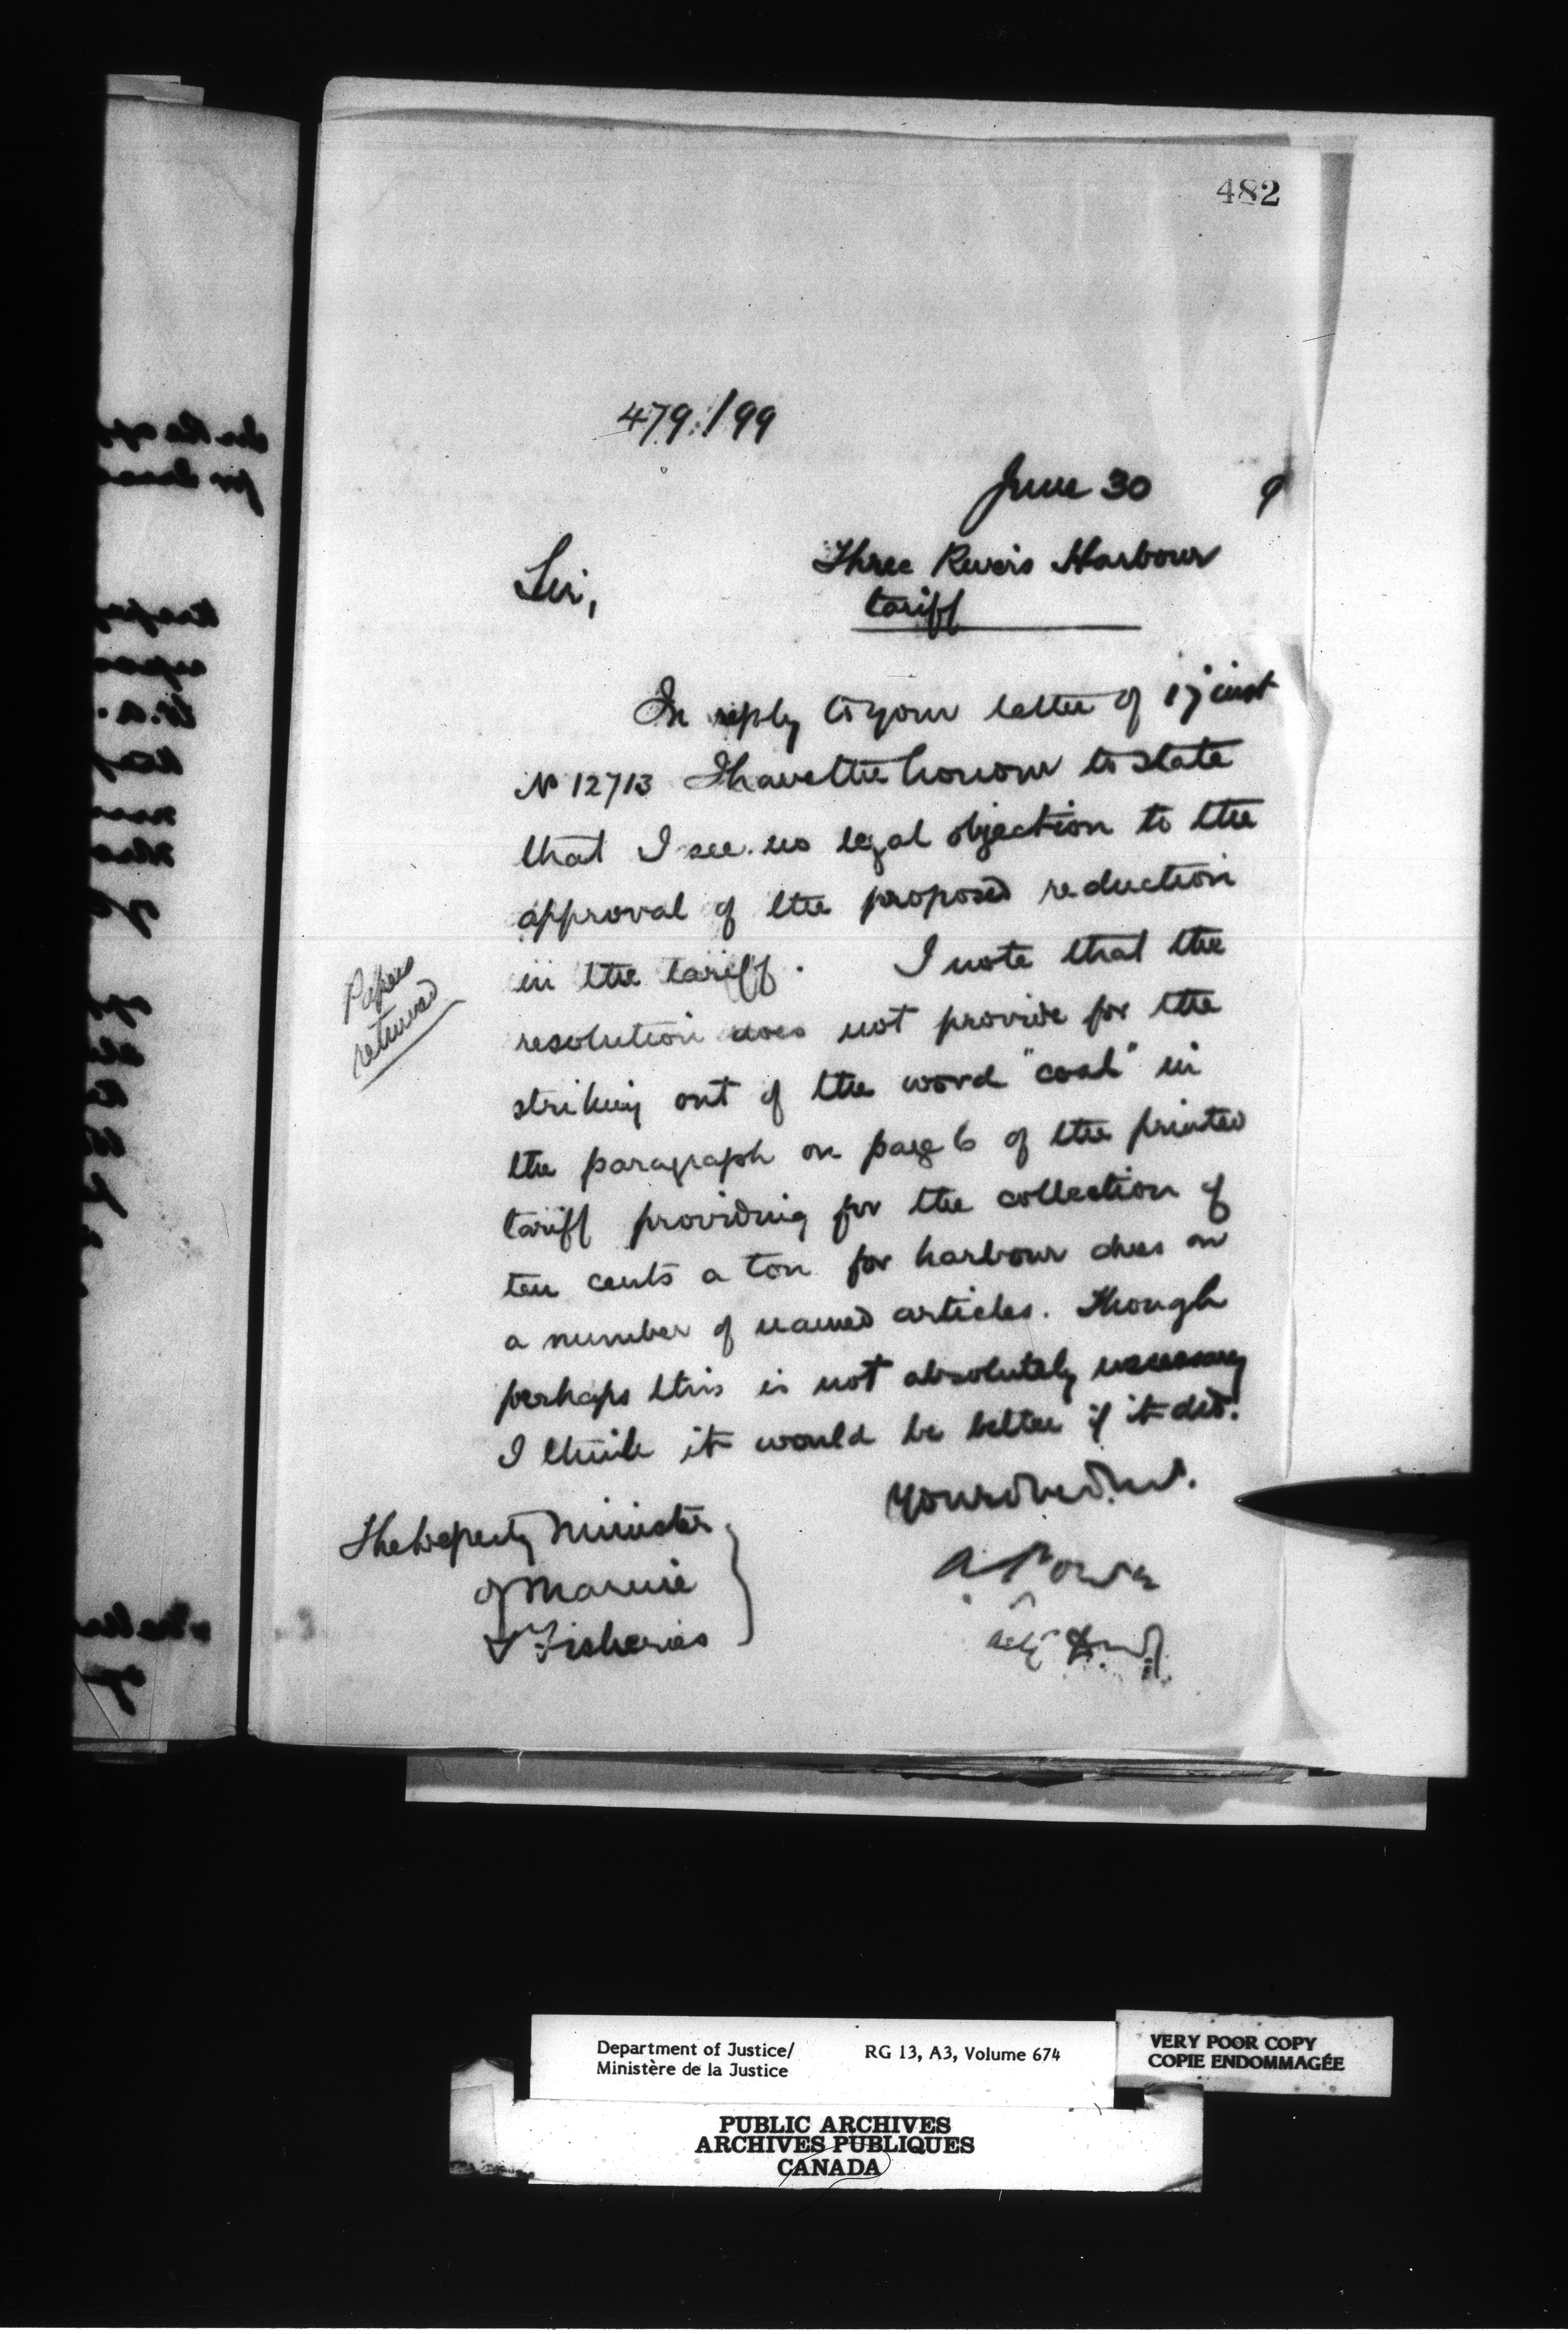 482
479./99
June 30 9
Sir,
Three Rivers Harbour
tariff
In reply to your letter of 17 inst
No 12713 I have the honour to state
that I see no legal objection to the
approval of the proposed reduction
in the tariff. I note that the
resolution does not provide for the
striking out of the word "coal" in
the paragraph on page 6 of the printed
tariff providing for the collection of
ten cents a ton for harbour dues on
a number of named articles. Though
perhaps this is not absolutely necessary
I think it would be better if it did.
Papers
returned
A Power
The Deputy Minister
of Marine
& Fisheries
Department of Justice/
Ministère de la Justice
RG 13, A3, Volume 674
VERY POOR COPY
COPIE ENDOMMAGÉE
PUBLIC ARCHIVES
ARCHIVES PUBLIQUES
CANADA